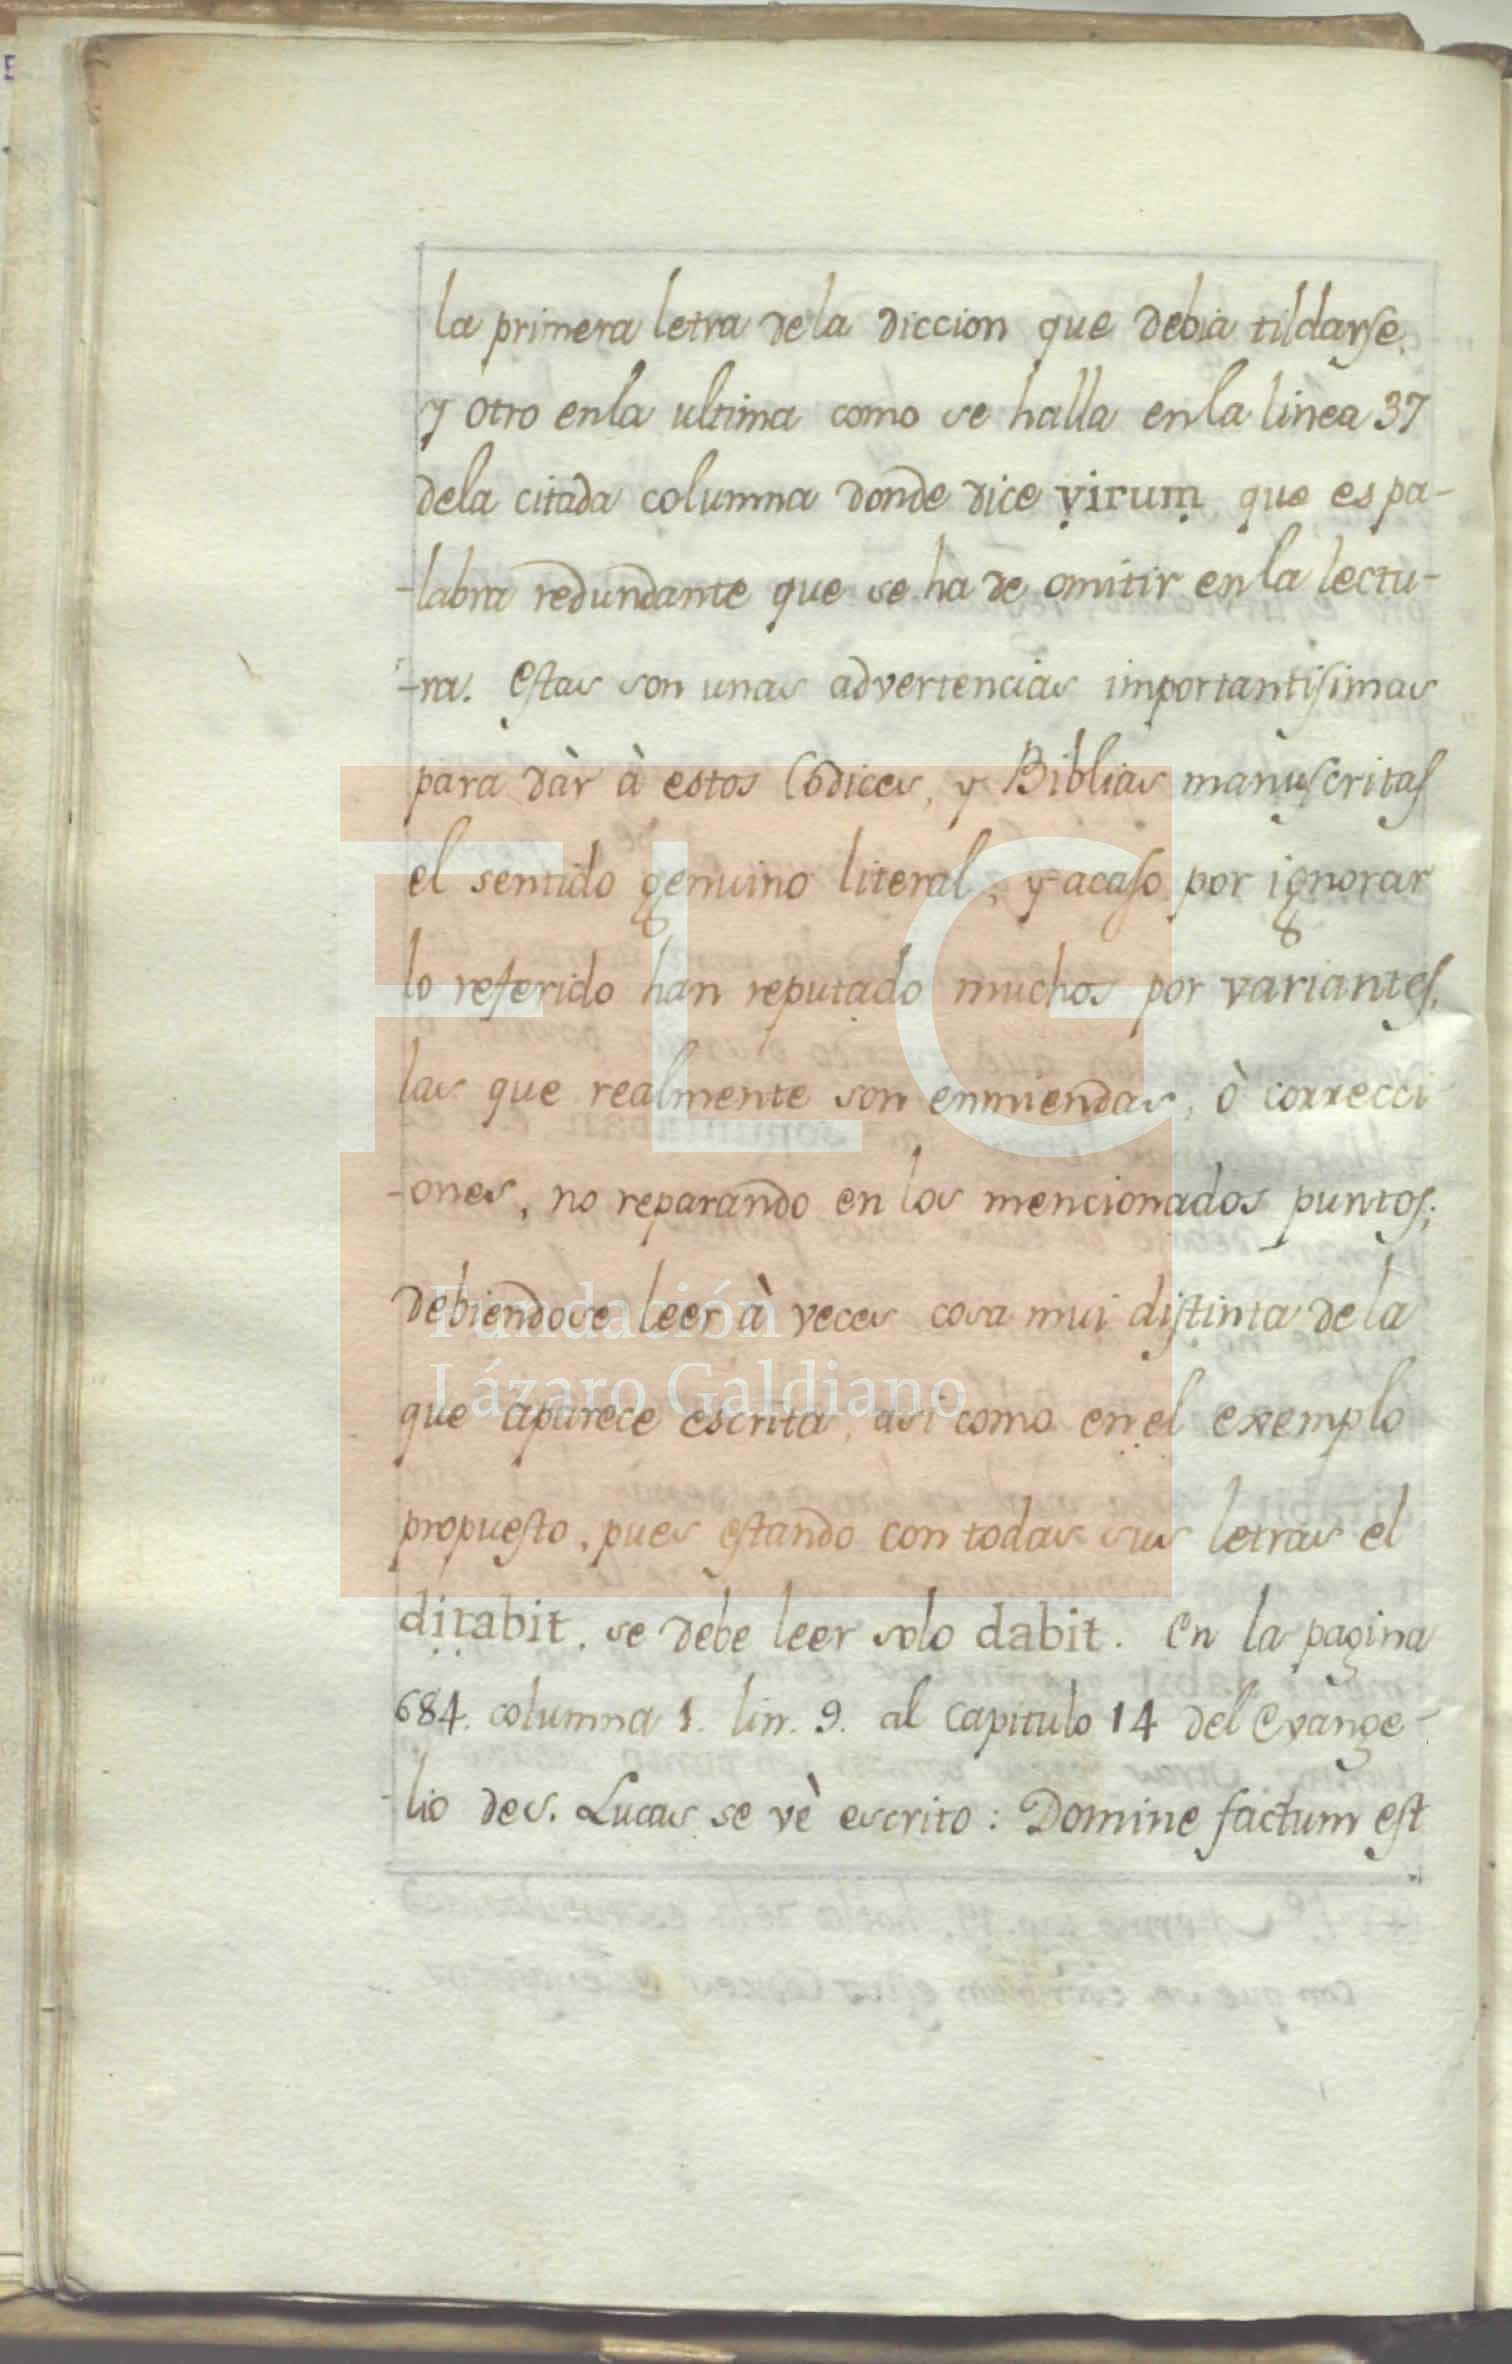 la primera letra dela diccion que debia tildarse.
y otro enla ultima como se halla enla linea 37
dela citada columna donde dice ṿirum̤ que es pa-
-labra redundante que se ha de omitir en la lectu-
-ra. estas son unas advertencias importantisimas
para dàr à estos Codices, y Biblias manuscritas
el sentido genuino literal, y acaso por ignorar
lo referido han reputado muchos por variantes,
las que realmente son enmiendas, ò correcci
-ones, no reparando en los mencionados puntos;
debiendose leer à veces cosa mui distinta dela
que aparece escrita, asi como en el exemplo
propuesto, pues estando con todas sus letras el
dịṭabit, se debe leer solo dabit. en la pagina
684. columna 1. lin. 9. al capitulo 14 del evange-
-lio de s. Lucas se vè escrito: Domine factum est
FLG
Fundación
Lázaro Galdiano